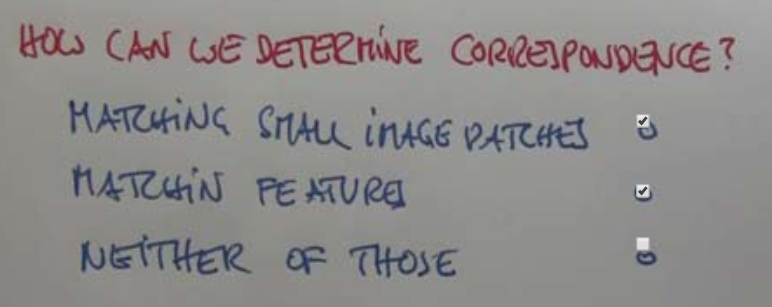 HOW CAN WE DETERMINE CORRESPONDENCE?
MATCHING SMALL IMAGE PATCHES
MATCHIN FEATURES
NEITHER OF THOSE